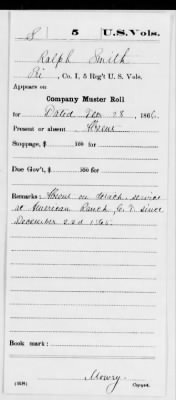 S 5 U.S. Vols.
Ralph Smith
Pri, Co. I, 5 Reg't U. S. Vols.
Appears on
Company Muster Roll
for Dated Nov 28, 1866.
Present or absent Absent
Stoppage, $ 100 for
Due Gov't, $ 100 for
Remarks: Absent on detach. service
at American Ranch, C. T. since
December 23d 1865.
Book mark:
Mowry
(858) Copyist.